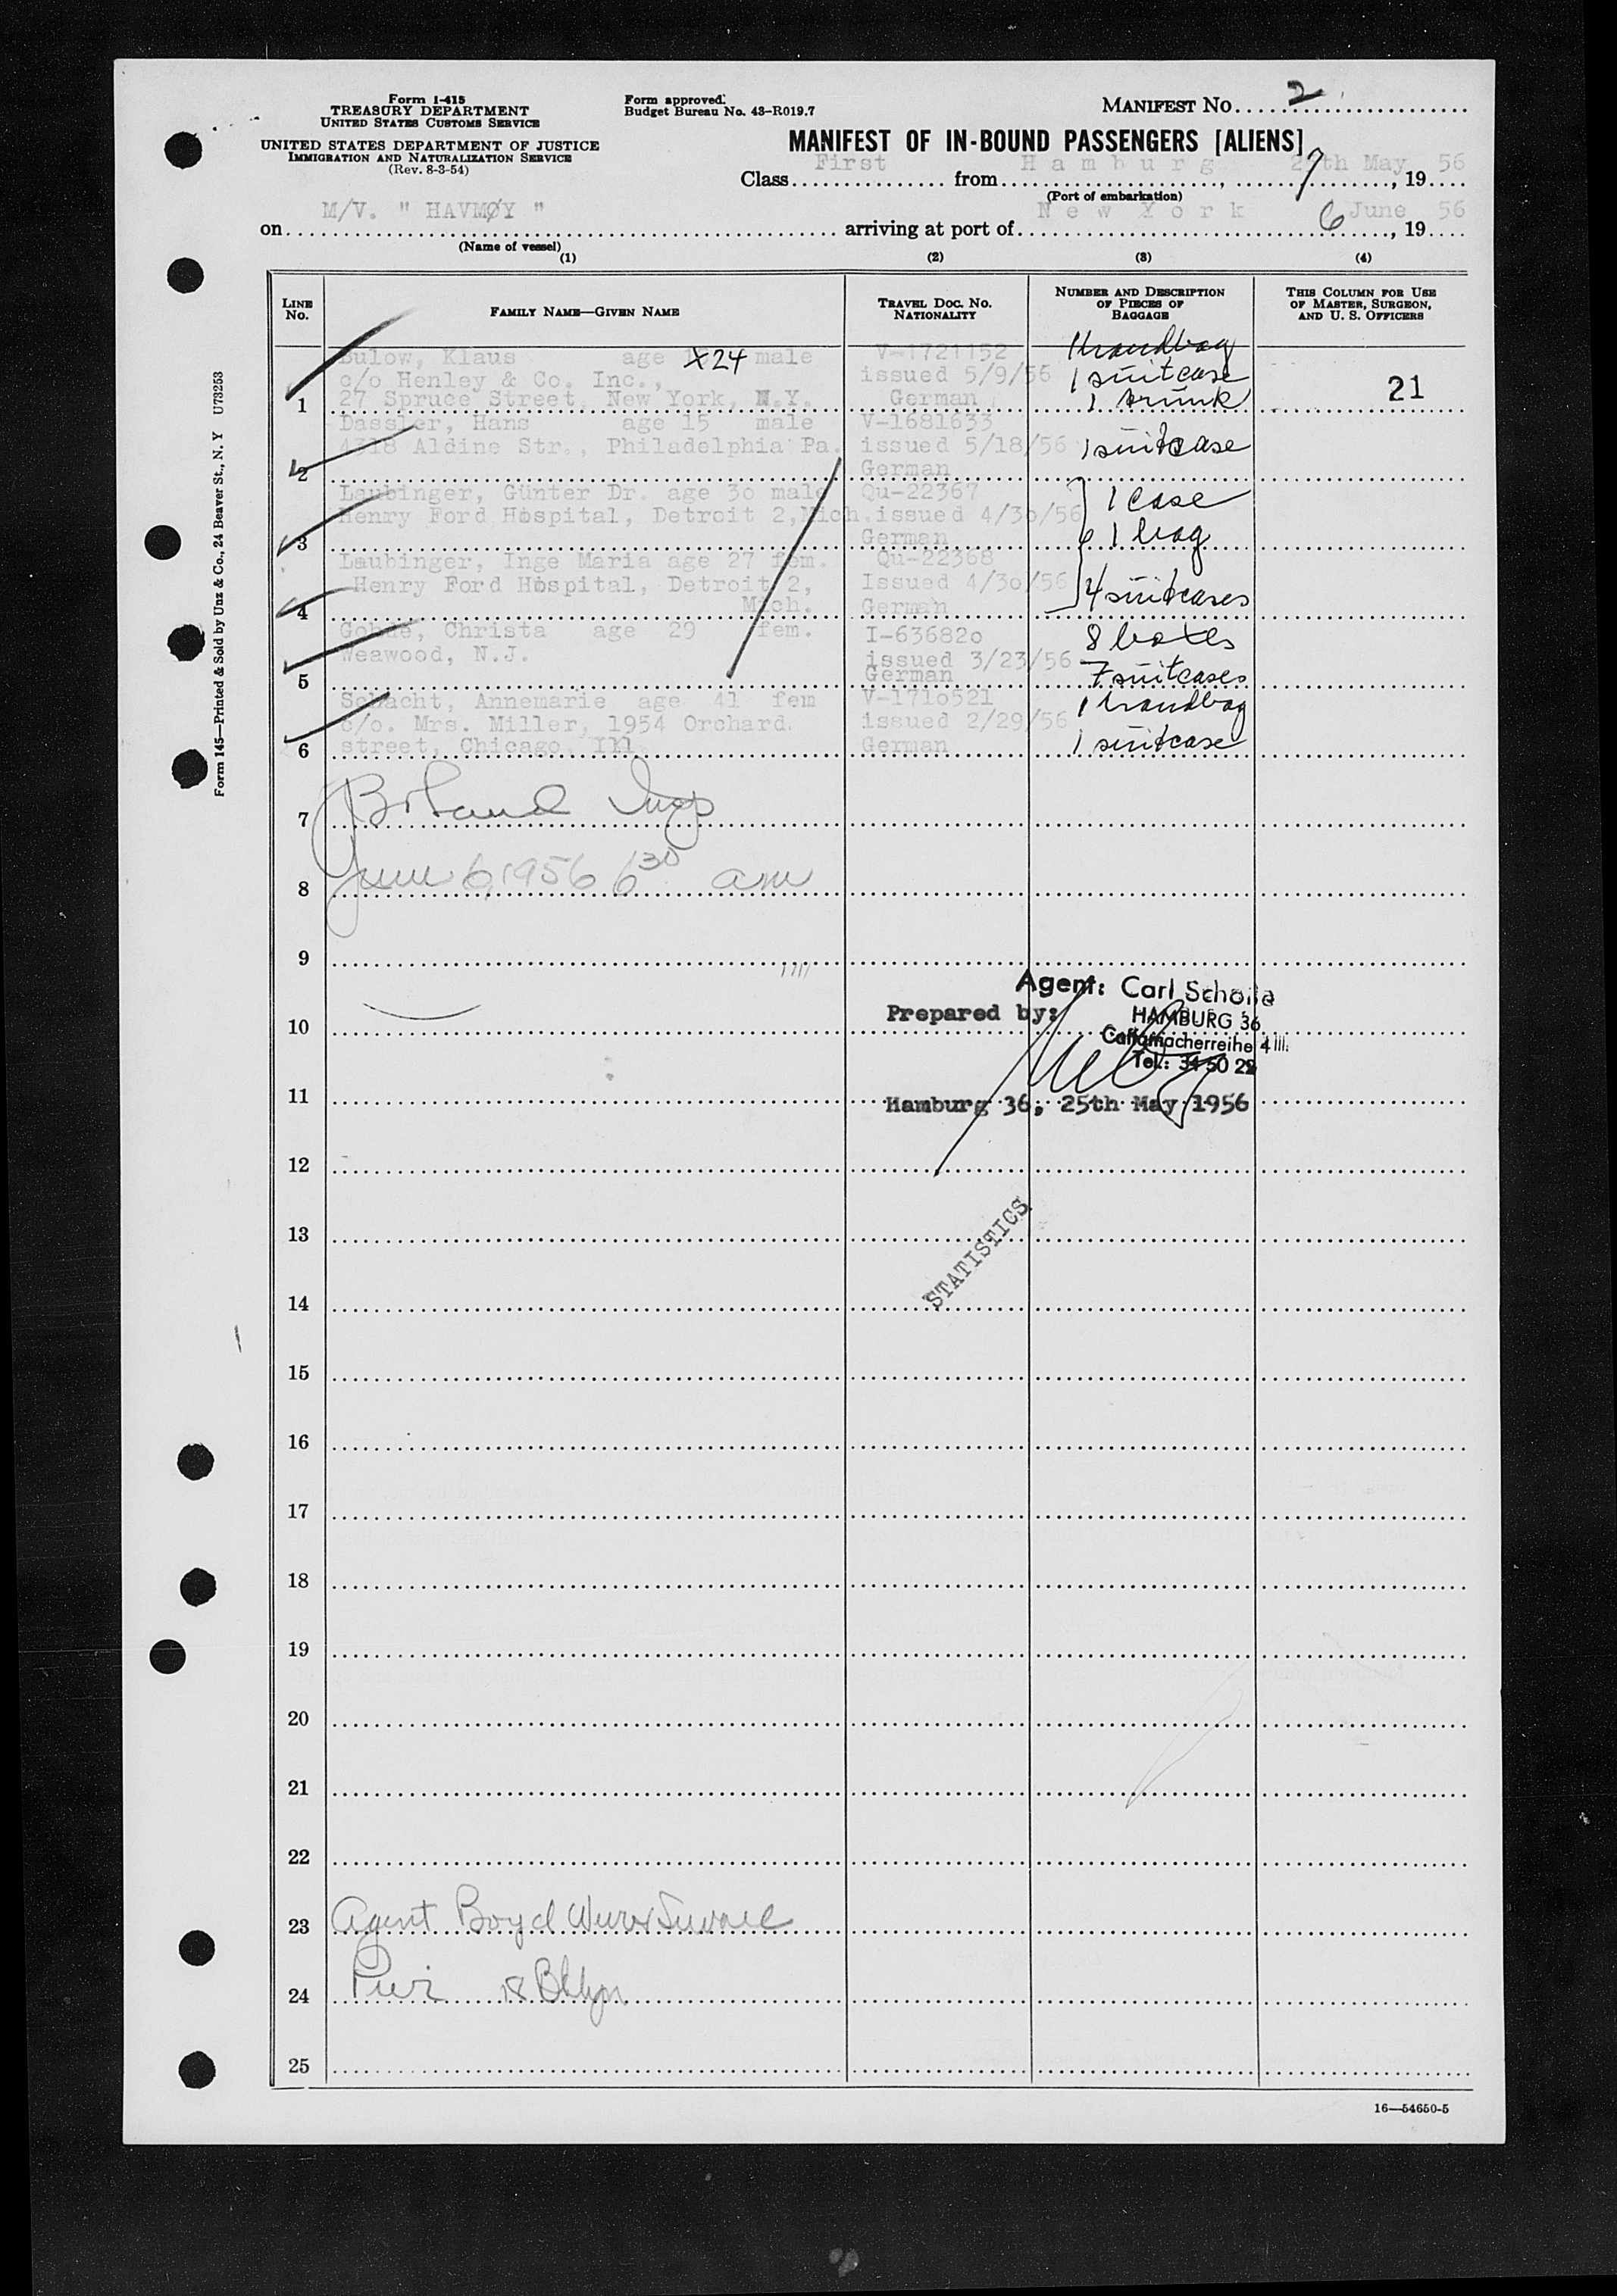 Form I-415
TREASURY DEPARTMENT
UNITED STATES CUSTOMS SERVICE
UNITED STATES DEPARTMENT OF JUSTICE
IMMIGRATION AND NATURALIZATION SERVICE
(Rev. 8-3-54)
Form approved.
Budget Bureau No. 43-R019.7
MANIFEST NO. 2
MANIFEST OF IN-BOUND PASSENGERS [ALIENS]
Class First from Hamburg, 27th May, 19 56
(Port of embarkation)
on M/V. " HAVMØY " arriving at port of New York 6 June, 19 56
(Name of vessel)
(1) (2) (3) (4)
LINE NO.
FAMILY NAME—GIVEN NAME
TRAVEL DOC. NO. NATIONALITY
NUMBER AND DESCRIPTION OF PIECES OF BAGGAGE
THIS COLUMN FOR USE OF MASTER, SURGEON, AND U. S. OFFICERS
Bulow, Klaus age 24 male V-1721152 1 handbag
c/o Henley & Co. Inc., issued 5/9/56 1 suitcase
1 27 Spruce Street, New York, N.Y. German 1 trunk 21
Dassler, Hans age 15 male V-1681633
4318 Aldine Str., Philadelphia Pa. issued 5/18/56 1 suitcase
2 German
Laubinger, Günter Dr. age 30 male Qu-22367 1 case
Henry Ford Hospital, Detroit 2, Mich. issued 4/30/56
3 German 1 bag
Laubinger, Inge Maria age 27 fem. Qu-22368
Henry Ford Hospital, Detroit 2, Issued 4/30/56
4 Mich. German 4 suitcases
Christa age 29 fem. I-636820 8 boxes
Weawood, N.J. issued 3/23/56
5 German 7 suitcases
Schacht, Annemarie age 41 fem V-1710521 1 handbag
c/o. Mrs. Miller, 1954 Orchard issued 2/29/56
6 street, Chicago Ill German 1 suitcase
7
8 June 6, 1956 6 30 am
9
Agent: Carl Scholle
Prepared by: HAMBURG 36
10
Caffamacherreihe 4 III.
Tel.: 34 50 22
11 Hamburg 36, 25th May 1956
12
13
STATISTICS
14
15
16
17
18
19
20
21
22
23 Agent Boyd
24 Pier 18 Bklyn
25
16—54650-5
Form 145—Printed & Sold by Unz & Co., 24 Beaver St., N. Y U73253